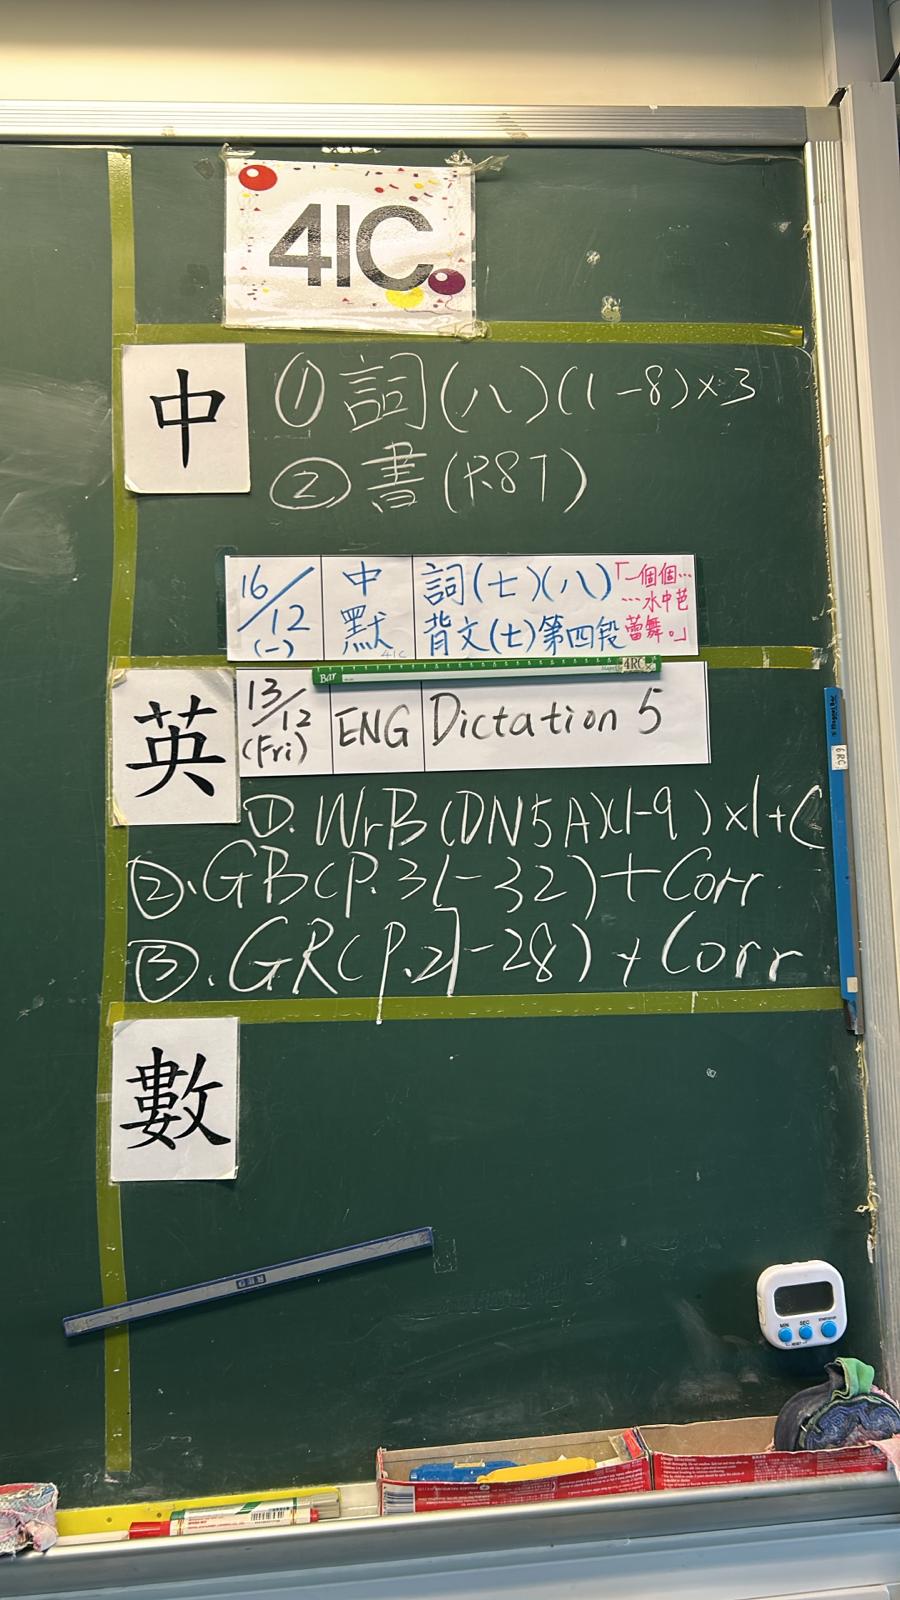 4IC
中
① 詞(八)(1-8)×3
② 書(P.87)
16/12 (一) 中默 詞(七)(八) 背文(七)第四段 「一個個……水中芭蕾舞。」
41C
Bar 4RC
英
13/12 (Fri) ENG Dictation 5
①. WrB (DN5A)(1-9)×1+C
②. GB(P.31-32)+Corr.
③. GR(P.27-28)+Corr
6RC
數
MIN SEC